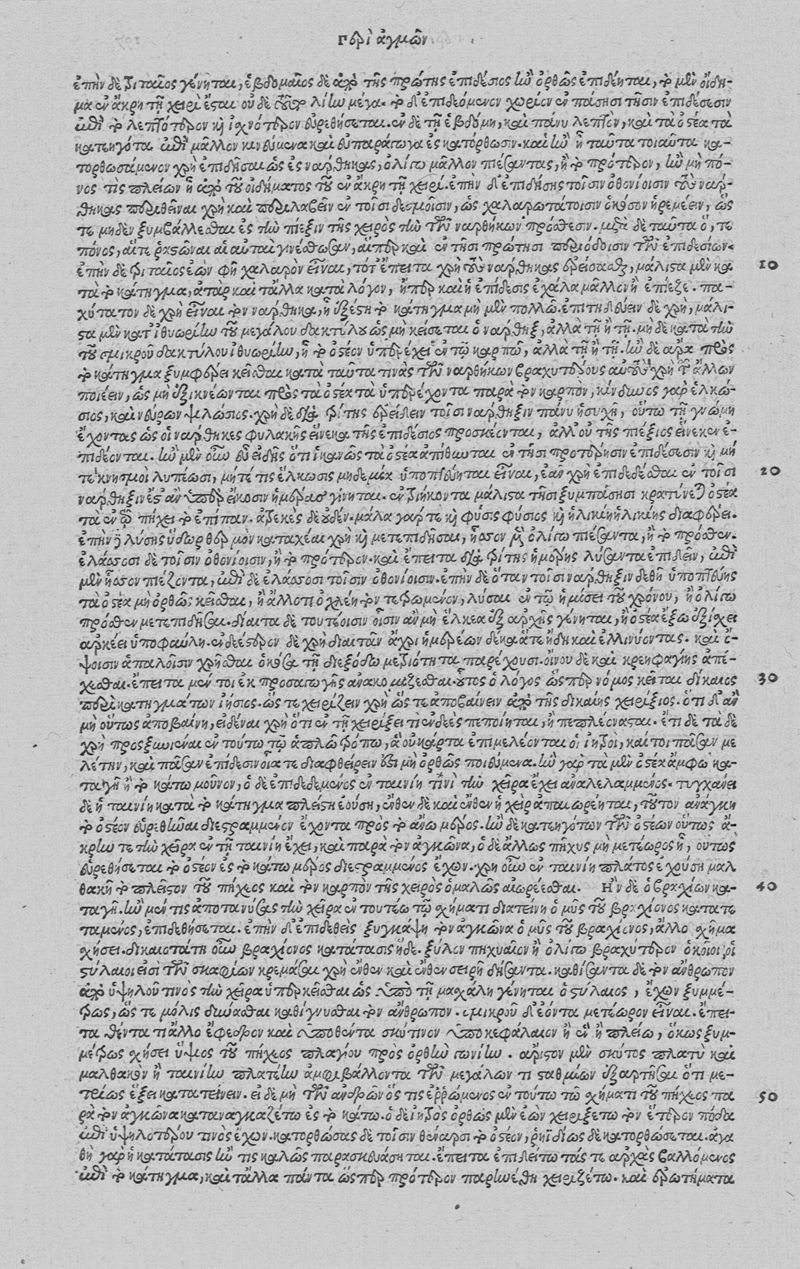 περὶ ἀγμῶν
ἐπὴν δὲ τριταῖος γένηται, ἑβδομαῖος δὲ ἀπὸ τῆς πρώτης ἐπιδέσιος ἢν ὀρθῶς ἐπιδέηται, τὸ μὲν οἴδη-
μα ἐν ἄκρῃ τῇ χειρὶ ἔσται οὐδὲ τοῦτο λίην μέγα. τὸ δ' ἐπιδεόμενον χωρίον ἐν πάσῃσι τῇσιν ἐπιδέσεσιν
ἐπὶ τὸ λεπτότερον καὶ ἰσχνότερον εὑρεθήσεται. ἐν δὲ τῇ ἑβδόμῃ, καὶ πάνυ λεπτὸν, καὶ τὰ ὀστέα τὰ
κατεηγότα ἐπὶ μᾶλλον κινεύμενα καὶ εὐπαράγωγα ἐς κατόρθωσιν. καὶ ἢν ᾖ ταῦτα τοιαῦτα κα-
τορθωσάμενον χρὴ ἐπιδῆσαι ὡς ἐς νάρθηκας, ὀλίγῳ μᾶλλον πιέσαντας, ἢ τὸ πρότερον, ἢν μὴ πό-
νος τις πλείων ᾖ ἀπὸ τοῦ οἰδήματος τοῦ ἐν ἄκρῃ τῇ χειρί. ἐπὴν δ' ἐπιδήσῃς τοῖσιν ὀθονίοισιν τοὺς νάρ-
θηκας περιθεῖναι χρὴ καὶ περιλαβεῖν ἐν τοῖσι δεσμοῖσιν, ὡς χαλαρωτάτοισιν ὁκόσον ἠρεμέειν, ὥς
τε μηδὲν ξυμβάλλεσθαι ἐς τὴν πίεξιν τῆς χειρὸς τὴν τῶν ναρθήκων πρόσθεσιν. μετὰ δὲ ταῦτα ὅ, τε
πόνος, αἵ τε ῥαστῶναι αἱ αὐταὶ γινέσθωσαν, αἵπερ καὶ ἐν τῇσι πρώτῃσι περιόδοισιν τῶν ἐπιδεσίων.
ἐπὴν δὲ τριταῖος ἐὼν φῇ χαλαρὸν εἶναι, τότ' ἔπειτα χρὴ τοὺς νάρθηκας ἐρείσασθαι, μάλιστα μὲν κα- 10
τὰ τὸ κάτηγμα, ἀτὰρ καὶ τἄλλα κατὰ λόγον, ᾗπερ καὶ ἡ ἐπίδεσις ἐχάλα μᾶλλον ἢ ἐπίεζε. πα-
χύτατον δὲ χρὴ εἶναι τὸν νάρθηκα, ᾗ ἐξέστη τὸ κάτηγμα μὴ μὲν πολλῷ. ἐπιτηδεύειν δὲ χρὴ, μάλι-
στα μὲν κατ' ἰθυωρίην τοῦ μεγάλου δακτύλου ὡς μὴ κείσεται ὁ νάρθηξ, ἀλλὰ τῇ ἢ τῇ. μὴ δὲ κατὰ τὴν
τοῦ σμικροῦ δακτύλου ἰθυωρίην, ᾗ τὸ ὀστέον ὑπερέχει ἐν τῷ καρπῷ, ἀλλὰ τῇ ἢ τῇ. ἢν δὲ ἄρα πρὸς
τὸ κάτηγμα ξυμφέρει κεῖσθαι κατὰ ταῦτα τινὰς τῶν ναρθήκων βραχυτέρους αὐτοὺς χρὴ τῶν ἄλλων
ποιέειν, ὡς μὴ ἐξικνέωνται πρὸς τὰ ὀστέα τὰ ὑπερέχοντα παρὰ τὸν καρπὸν, κίνδυνος γὰρ ἑλκώ-
σιος, καὶ νεύρων ψιλώσιος. χρὴ δὲ διὰ τρίτης ἐρείδειν τοῖσι νάρθηξιν πάνυ ἡσυχῆ, οὕτω τῇ γνώμῃ
ἔχοντας ὡς οἱ νάρθηκες φυλακῆς εἵνεκα τῆς ἐπιδέσιος προσκέονται, ἀλλ' οὐ τῆς πιέξιος εἵνεκεν ἐ-
πιδέονται. ἢν μὲν οὖν εὖ εἰδῇς ὅτι ἱκανῶς τὰ ὀστέα ἀπίθυνται ἐν τῇσι προτέρῃσιν ἐπιδέσεσιν καὶ μή
τε κνησμοὶ λυπέωσι, μήτέ τις ἕλκωσις μηδεμία ὑποπτεύηται εἶναι, ἐᾶν χρὴ ἐπιδεδέσθαι ἐν τοῖσι 20
νάρθηξιν ἔστ' ἂν ὑπὲρ εἴκοσιν ἡμέρας γίνηται. ἐν τριήκοντα μάλιστα τῇσι ξυμπάσῃσι κρατύνεται ὀστέα
τὰ ἐν τῷ πήχει τὸ ἐπίπαν. ἀτρεκὲς δ' οὐδέν. μάλα γάρ τε καὶ φύσις φύσιος καὶ ἡλικίη ἡλικίης διαφέρει.
ἐπὴν δὲ λύσῃς ὕδωρ θερμὸν καταχέαι χρὴ καὶ μετεπιδῆσαι, ἧσσον μὲν ὀλίγῳ πιέσαντα, ἢ τὸ πρόσθεν.
ἐλάσσοσι δὲ τοῖσιν ὀθονίοισιν, ἢ τὸ πρότερον. καὶ ἔπειτα διὰ τρίτης ἡμέρης λύσαντα ἐπιδεῖν, ἐπὶ
μὲν ἧσσον πιέζοντα, ἐπὶ δὲ ἐλάσσοσι τοῖσιν ὀθονίοισιν. ἐπὴν δὲ ὅταν τοῖσι νάρθηξιν δεθῇ ὑποπτεύῃς
τὰ ὀστέα μὴ ὀρθῶς κεῖσθαι, ἢ ἄλλο τι ὀχλέῃ τὸν τετρωμένον, λῦσαι ἐν τῷ ἡμίσει τοῦ χρόνου, ἢ ὀλίγῳ
πρόσθεν μετεπιδῆσαι. δίαιτα δὲ τουτέοισιν οἷσιν ἂν μὴ ἕλκεα ἐξ ἀρχῆς γένηται, ἢ ὀστέα ἔξω ἐξίσχει
ἀρκέει ὑποφαύλη. ἐνδεέστερον δὲ χρὴ διαιτᾶν ἄχρι ἡμερέων δέκα ἅτε ἤδη καὶ ἐλινύοντας. καὶ ὄ-
ψοισιν ἁπαλοῖσιν χρῆσθαι ὁκόσα τῇ διεξόδῳ μετριότητα παρέχουσι. οἴνου δὲ καὶ κρεηφαγίης ἀπέ-
χεσθαι. ἔπειτα μέν τοι ἐκ προσαγωγῆς ἀνακομίζεσθαι. οὗτος ὁ λόγος ὥσπερ νόμος κεῖται δίκαιος 30
περὶ κατηγμάτων ἰήσιος. ὥς τε χειρίζειν χρὴ ὥς τε ἀποβαίνειν ἀπὸ τῆς δικαίης χειρίξιος. ὅτι δ' ἂν
μὴ οὕτως ἀποβαίνῃ, εἰδέναι χρὴ ὅτι ἐν τῇ χειρίξει τι ἐνδεὲς πεποίηται, ἢ πεπλεόνασται. ἔτι δὲ τὰ δὲ
χρὴ προσξυνιέναι ἐν τούτῳ τῷ ἁπλῷ τρόπῳ, ἃ οὐ κάρτα ἐπιμελέονται οἱ ἰητροὶ, καί τοι πᾶσαν με
λέτην, καὶ πᾶσαν ἐπίδεσιν οἷά τε διαφθείρειν ἐστὶ μὴ ὀρθῶς ποιεύμενα. ἢν γὰρ τὰ μὲν ὀστέα ἄμφω κα-
ταγῇ ἢ τὸ κάτω μοῦνον, ὁ δὲ ἐπιδεδεμένος ἐν ταινίῃ τινὶ τὴν χεῖρα ἔχει ἀναλελαμμένος. τυγχάνει
δὲ ἡ ταινίη κατὰ τὸ κάτηγμα πλείστη ἐοῦσα, ἔνθεν δὲ καὶ ἔνθεν ἡ χεὶρ ἀπαιωρέηται, τοῦτον ἀνάγκη
τὸ ὀστέον εὑρεθῆναι διεστραμμένον ἔχοντα πρὸς τὸ ἄνω μέρος. ἢν δὲ κατεηγότων τῶν ὀστέων οὕτως ἄ-
κρην τε τὴν χεῖρα ἐν τῇ ταινίῃ ἔχῃ, καὶ παρὰ τὸν ἀγκῶνα, ὁ δὲ ἄλλος πῆχυς μὴ μετέωρος ᾖ, οὕτως
εὑρεθήσεται τὸ ὀστέον ἐς τὸ κάτω μέρος διεστραμμένος ἔχον. χρὴ οὖν ἐν ταινίῃ πλάτος ἐχούσῃ μαλ
θακῇ τὸ πλεῖστον τοῦ πήχεος καὶ τὸν καρπὸν τῆς χειρὸς ὁμαλῶς αἰωρέεσθαι. Ἢν δὲ ὁ βραχίων κα- 40
ταγῇ. ἢν μέν τις ἀποτανύσας τὴν χεῖρα ἐν τουτέῳ τῷ σχήματι διατείνῃ ὁ μῦς τοῦ βραχίονος κατατε
ταμένος, ἐπιδεθήσεται. ἐπὴν δ' ἐπιδεθεὶς ξυγκάμψῃ τὸν ἀγκῶνα ὁ μῦς τοῦ βραχίονος, ἄλλο σχῆμα
σχήσει. δικαιοτάτη οὖν βραχίονος κατάτασις ἥδε. ξύλον πηχυαῖον ἢ ὀλίγῳ βραχύτερον ὁκοῖοι οἱ
στύλαιοί εἰσι τῶν σκαφίων κρεμάσαι χρὴ ἔνθεν καὶ ἔνθεν σειρῇ δήσαντα. καθίσαντα δὲ τὸν ἄνθρωπον
ἀπὸ ὑψηλοῦ τινὸς τὴν χεῖρα ὑπερκεῖσθαι ὡς ὑπὸ τῇ μασχάλῃ γένηται ὁ στύλαιος, ἔχων ξυμμέ-
τρως, ὥς τε μόλις δύνασθαι καθίγνυσθαι τὸν ἄνθρωπον. σμικροῦ δέοντα μετέωρον εἶναι. ἔπει-
τα θέντα τι ἄλλο ἔφεδρον καὶ ὑποθέντα σκύτινον ὑποκεφάλαιον ἢ ἓν ἢ πλείω, ὅκως ξυμ-
μέτρως σχήσει ὕψος τοῦ πήχεος πλαγίου πρὸς ὀρθὴν γωνίην. ἄριστον μὲν σκύτος πλατὺ καὶ
μαλθακὸν ἢ ταινίην πλατείην ἀμφιβάλλοντα τῶν μεγάλων τι σταθμίων ἐξαρτῆσαι ὅτι με-
τρίως ἕξει κατατείνειν. εἰ δὲ μὴ τῶν ἀνδρῶν ὅς τις ἐῤῥωμένος ἐν τούτῳ τῷ σχήματι τοῦ πήχεος πα 50
ρὰ τὸν ἀγκῶνα καταναγκαζέτω ἐς τὸ κάτω. ὁ δὲ ἰητρὸς ὀρθὸς μὲν ἐὼν χειριζέτω τὸν ἕτερον πόδα
ἐπὶ ὑψηλοτέρου τινὸς ἔχον. κατορθώσας δὲ τοῖσιν θέναρσι τὸ ὀστέον, ῥηϊδίως δὲ κατορθώσεται. ἀγα
θὴ γὰρ ἡ κατάτασις ἤν τις καλῶς παρασκευάσηται. ἔπειτα ἐπιδείτω τάς τε ἀρχὰς βαλλόμενος
ἐπὶ τὸ κάτηγμα, καὶ τἄλλα πάντα ὥσπερ πρότερον παρῃνέθη χειριζέτω. καὶ ἐρωτήματα